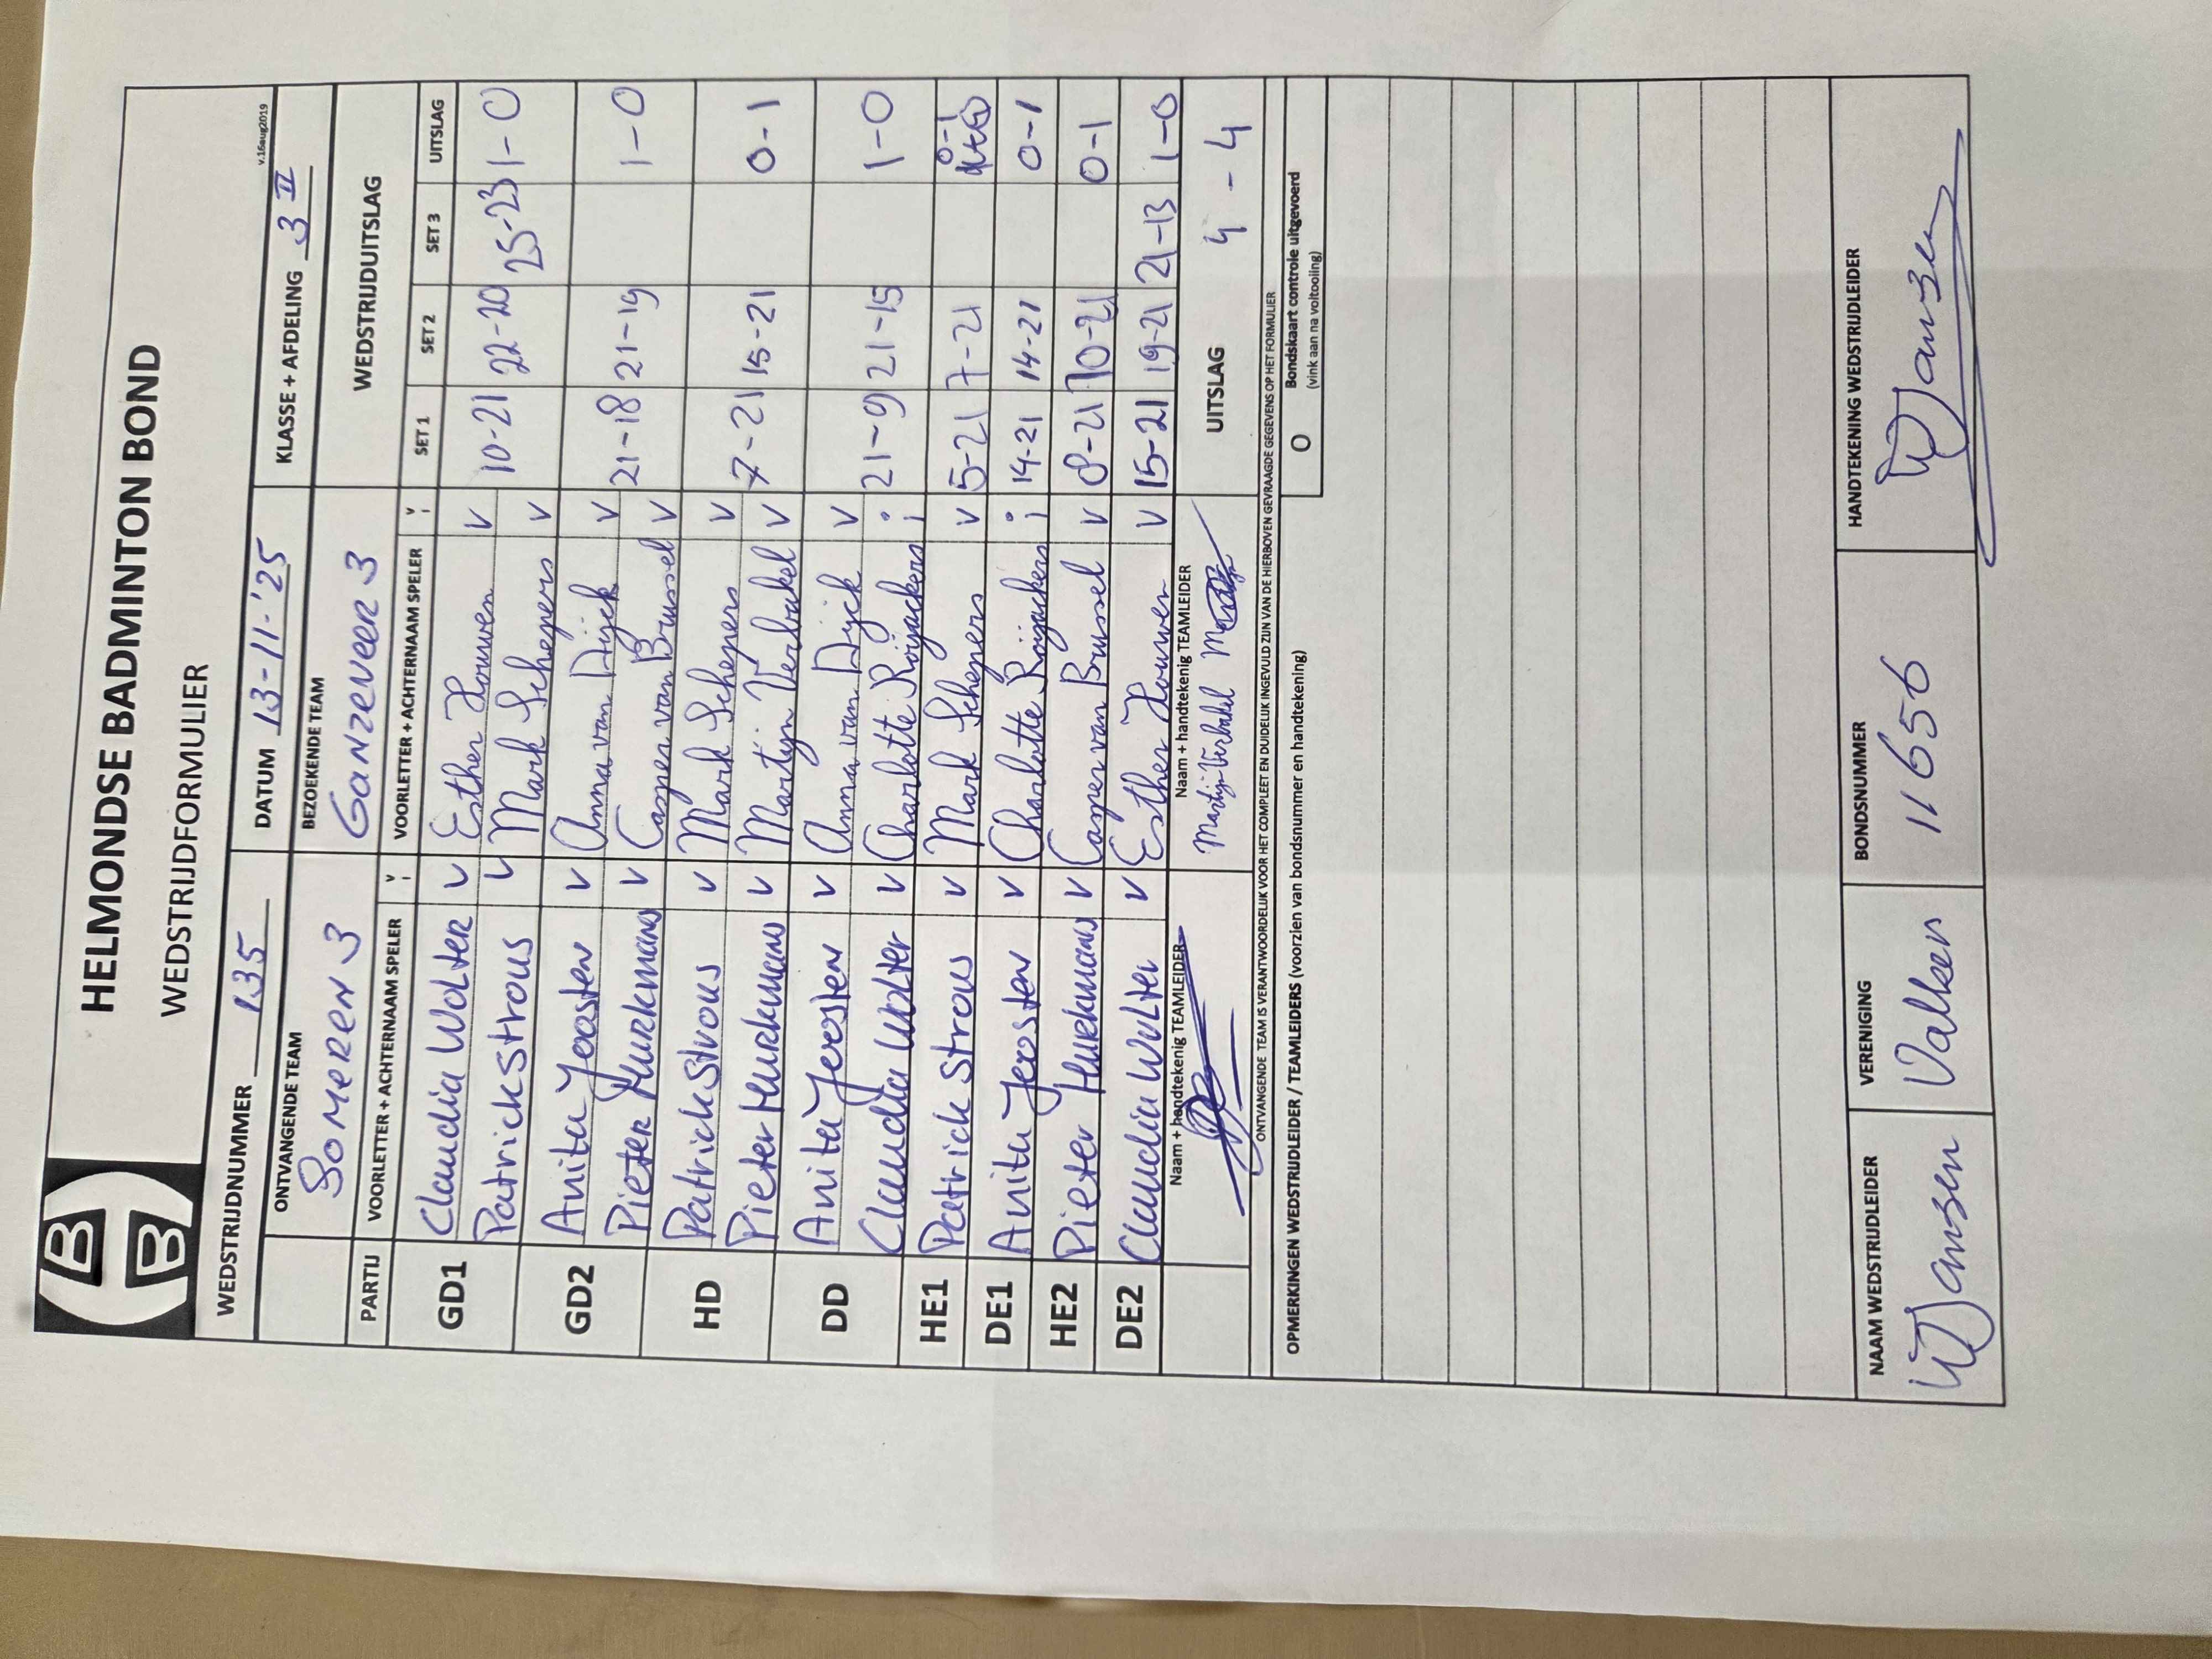 HELMONDSE BADMINTON BOND
WEDSTRIJDFORMULIER
v.16aug2019
WEDSTRIJDNUMMER 135 DATUM 13-11-'25 KLASSE + AFDELING 3 II
ONTVANGENDE TEAM BEZOEKENDE TEAM WEDSTRIJDUITSLAG
SOMEREN 3 GANZEVEER 3
PARTIJ VOORLETTER + ACHTERNAAM SPELER V I VOORLETTER + ACHTERNAAM SPELER V I SET 1 SET 2 SET 3 UITSLAG
GD1 Claudia Wolter V Esther Houwen V 10-21 22-20 25-23 1-0
Patrick Strous V Mark Schepers V
GD2 Anita Joosten V Anna van Dijck V 21-18 21-19 1-0
Pieter Hurkmans V Casper van Brussel V
HD Patrick Strous V Mark Schepers V 7-21 15-21 0-1
Pieter Hurkmans V Martijn Verbakel V
DD Anita Joosten V Anna van Dijck V 21-9 21-15 1-0
Claudia Wolter V Charlotte Roijackers i
HE1 Patrick Strous V Mark Schepers V 5-21 7-21 0-1
DE1 Anita Joosten V Charlotte Roijackers i 14-21 14-21 0-1
HE2 Pieter Hurkmans V Casper van Brussel V 8-21 10-21 0-1
DE2 Claudia Wolter V Esther Houwen V 15-21 19-21 21-13 1-0
Naam + handtekenig TEAMLEIDER Naam + handtekenig TEAMLEIDER UITSLAG 4 - 4
Martijn Verbakel
ONTVANGENDE TEAM IS VERANTWOORDELIJK VOOR HET COMPLEET EN DUIDELIJK INGEVULD ZIJN VAN DE HIERBOVEN GEVRAAGDE GEGEVENS OP HET FORMULIER
OPMERKINGEN WEDSTRIJDLEIDER / TEAMLEIDERS (voorzien van bondsnummer en handtekening) O Bondskaart controle uitgevoerd
(vink aan na voltooiing)
NAAM WEDSTRIJDLEIDER VERENIGING BONDSNUMMER HANDTEKENING WEDSTRIJDLEIDER
W Jansen Valken 11656 W Jansen